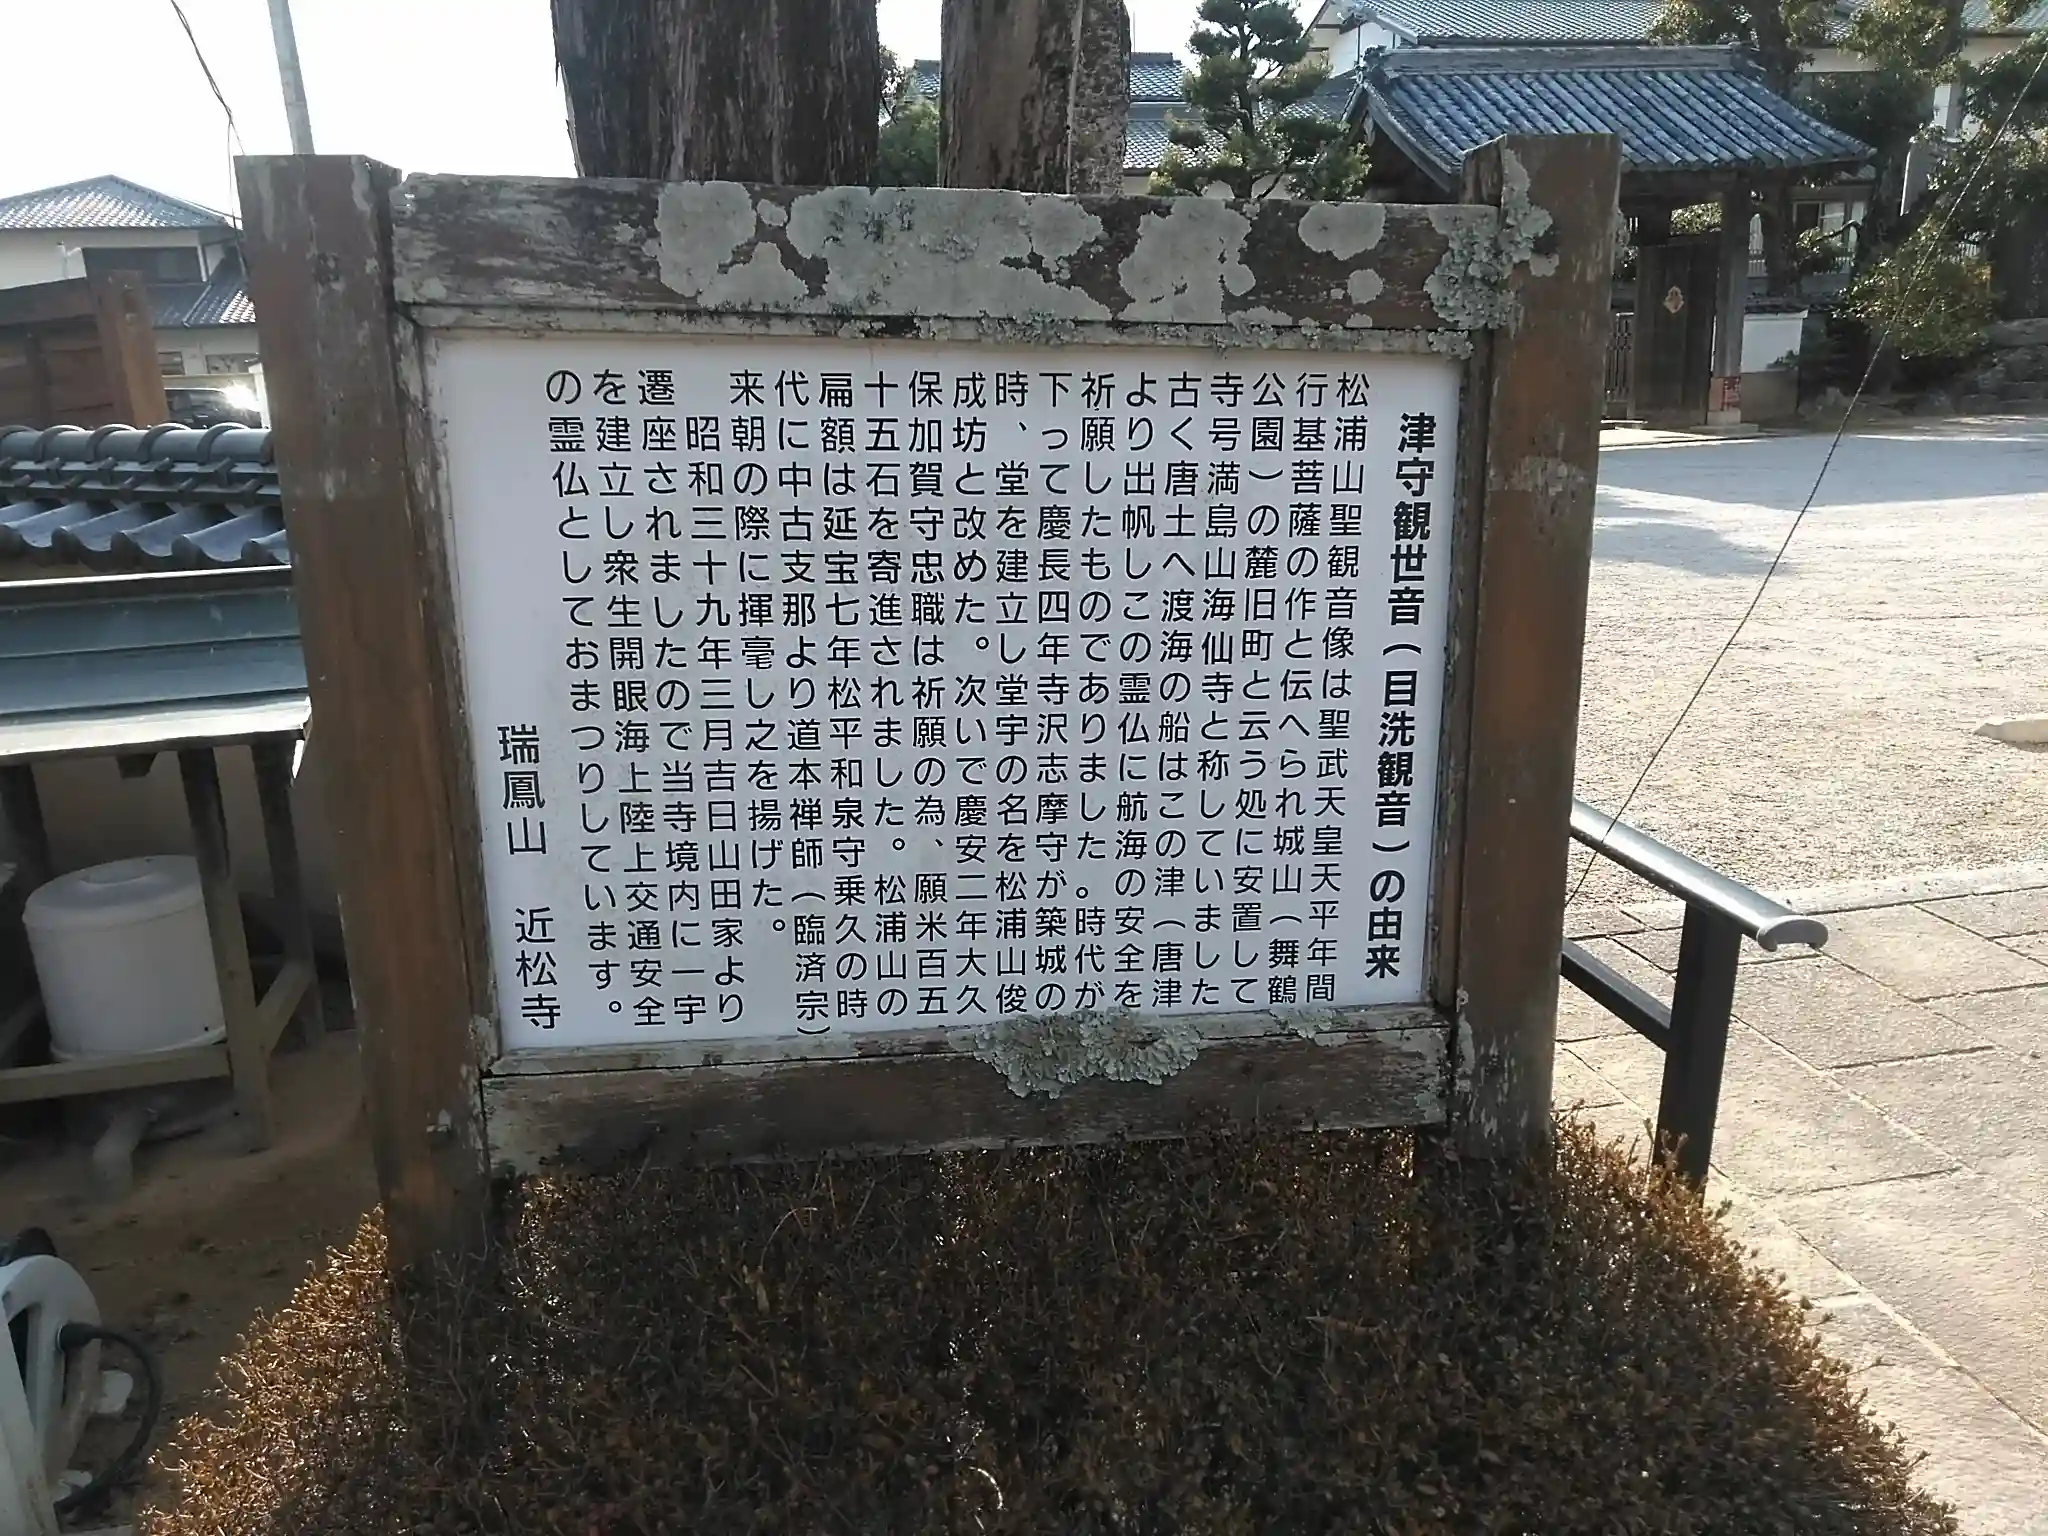 津守観世音（目洗観音）の由来
松浦山聖観音像は聖武天皇天平年間
行基菩薩の作と伝へられ城山（舞鶴
公園）の麓旧町と云う処に安置して
寺号満島山海仙寺と称していました
古く唐土へ渡海の船はこの津（唐津
より出帆しこの霊仏に航海の安全を
祈願したものでありました。時代が
下って慶長四年寺沢志摩守が築城の
時、堂を建立し堂宇の名を松浦山俊
成坊と改めた。次いで慶安二年大久
保加賀守忠職は祈願の為、願米百五
十五石を寄進されました。松浦山の
扁額は延宝七年松平和泉守乗久の時
代に中古支那より道本禅師（臨済宗）
来朝の際に揮毫し之を揚げた。
昭和三十九年三月吉日山田家より
遷座されましたので当寺境内に一宇
を建立し衆生開眼海上陸上交通安全
の霊仏としておまつりしています。
瑞鳳山　近松寺